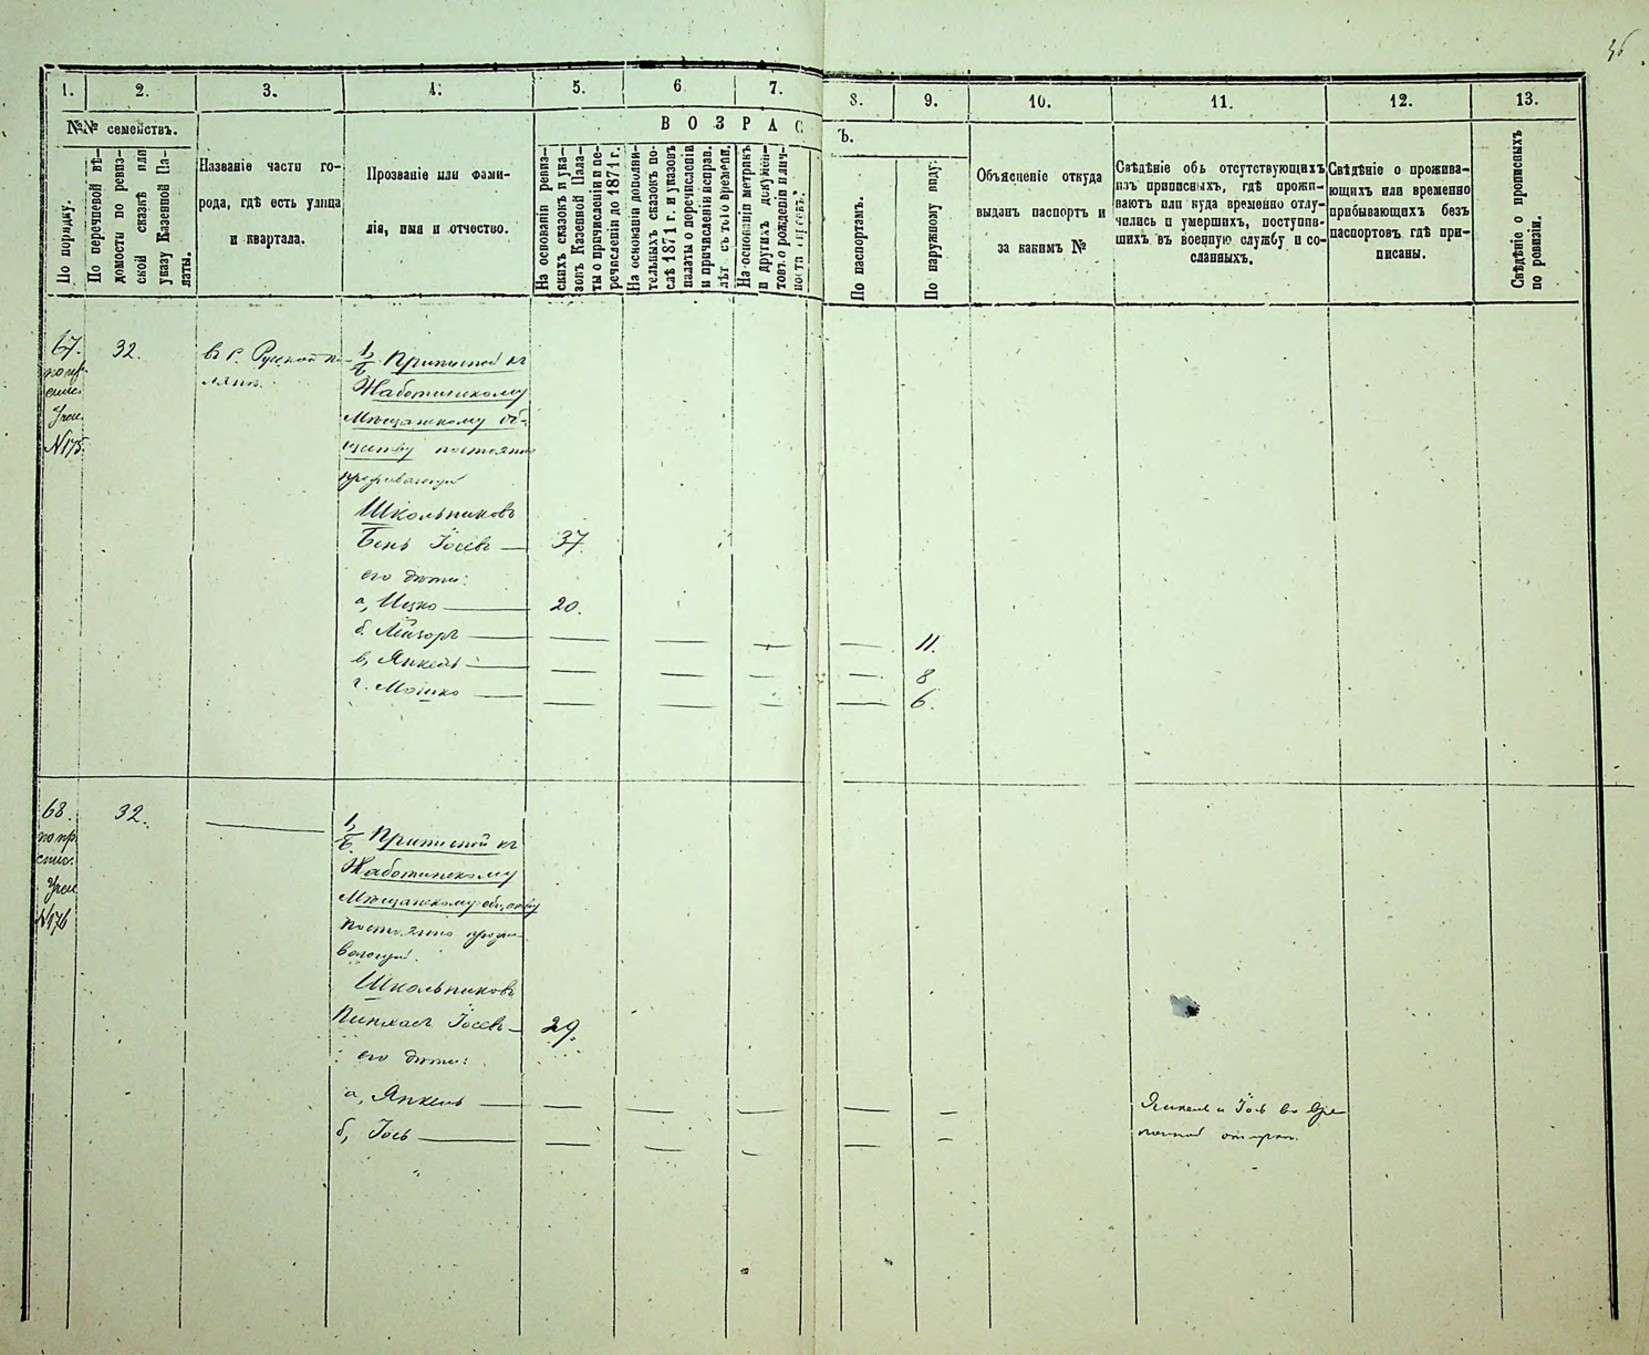 36
1.
2.
3.
4.
5.
6
7.
8.
9.
10.
11.
12.
13.
№№ семействъ.
По порядку.
По перечневой вѣ-
домости по ревиз-
ской сказкѣ или
указу Казенной Па-
латы.
Названіе части го-
рода, гдѣ есть улица
и квартала.
Прозваніе или фами-
лія, имя и отчество.
ВОЗРАС
Ъ.
На основаніи ревиз-
скихъ сказокъ и ука-
зовъ Казенной Пала-
ты о причисленіи и пе-
речисленіи до 1871 г.
На основаніи дополни-
тельныхъ сказокъ по-
слѣ 1871 г. и указовъ
палаты о перечисленіи
и причисленіи исправ.
лѣт съ того времени.
На основаніи метрикъ
и другихъ докумен-
товъ о рожденіи и лич-
ности
По паспортамъ.
По наружному виду.
Объясненіе откуда
выданъ паспортъ и
за какимъ №
Свѣдѣніе объ отсутствующихъ
изъ приписныхъ, гдѣ прожи-
ваютъ или куда временно отлу-
чились и умершихъ, поступив-
шихъ въ военную службу и со-
сланныхъ.
Свѣдѣніе о прожива-
ющихъ или временно
прибывающихъ безъ
паспортовъ гдѣ при-
писаны.
Свѣдѣніе о прописныхъ
по ревизіи.
67.
N175.
32.
въ с. Русской По-
лянѣ.
Приписной къ
Жаботинскому
Мѣщанскому об-
ществу постоянно
проживающій
Школьниковъ
Бень Іосевъ — 37
его дѣти:
а, Ицко — 20.
б. Лейзоръ — 11.
в, Янкель — 8
г. Мошко — 6.
68.
N176
32.
Приписной къ
Жаботинскому
Мѣщанскому обществу
постоянно прожи-
вающій.
Школьниковъ
Пинхасъ Іосевъ — 29.
его дѣти:
а, Янкель —
б, Іось —
Янкель и Іось во вре-